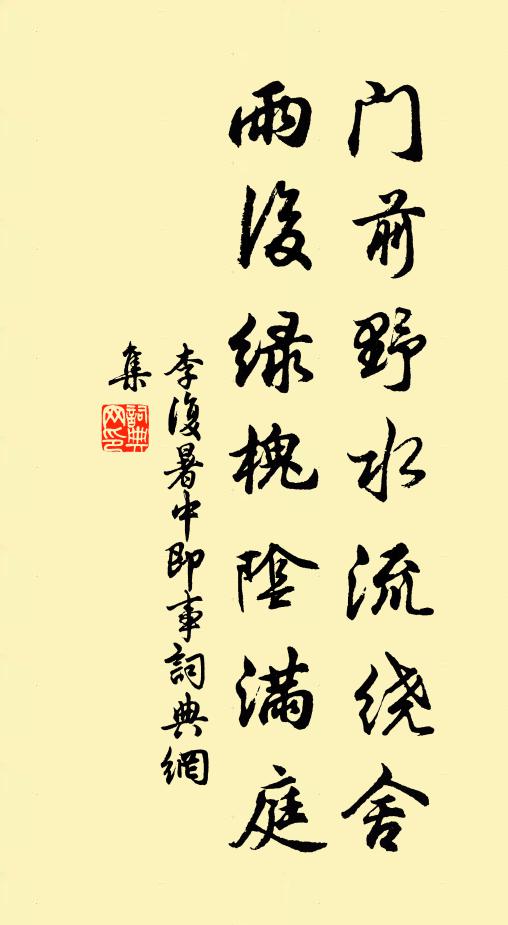 门前野水流绕舍
雨後绿槐陰满庭
李復暑中即事詞典網
集
詞典网印